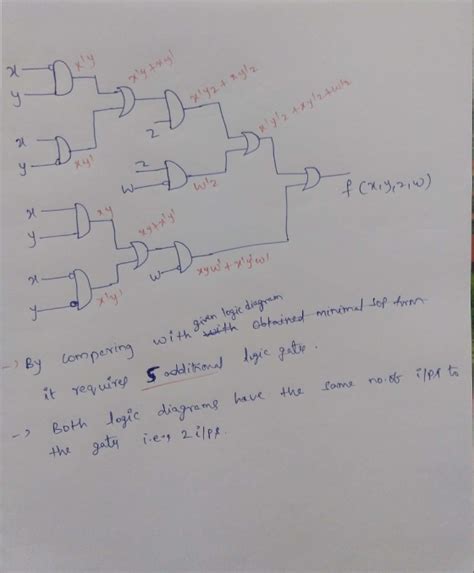 x
y
x'y
x'y + xy'
x
y
xy'
x'yz + xy'z
z
z
w
w'z
x'y'z + xy'z + w'z
f (x,y,z,w)
x
y
xy
xy + x'y'
x
y
x'y'
w
xyw' + x'y'w'
-> By comparing with given logic diagram with obtained minimal sop form
it requires 5 additional logic gates.
-> Both logic diagrams have the same no. of i/ps to
the gates i.e., 2 i/ps.